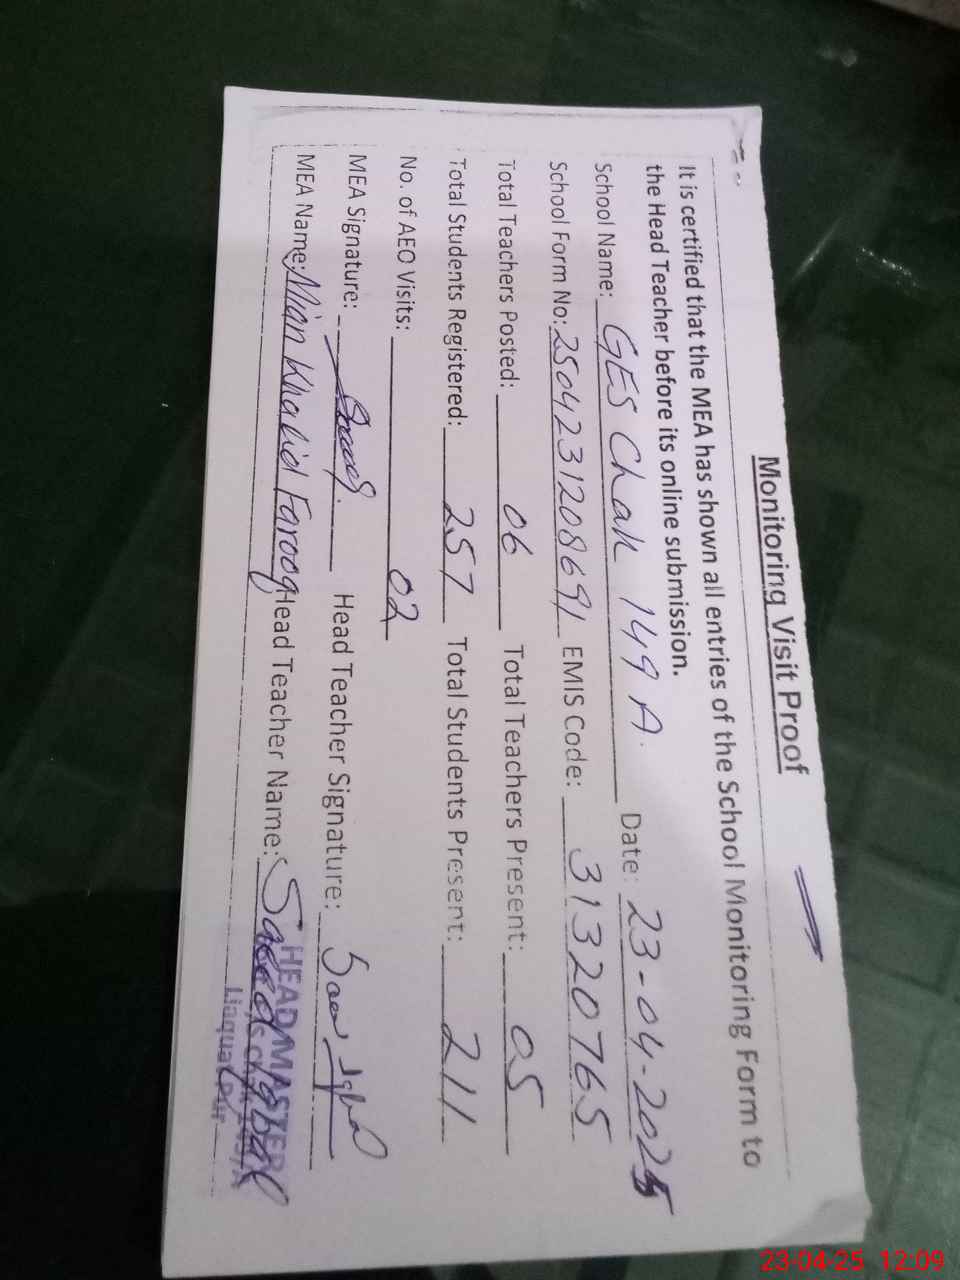 Monitoring Visit Proof
It is certified that the MEA has shown all entries of the School Monitoring Form to
the Head Teacher before its online submission.
School Name: GES Chak 149 A. Date: 23-04-2025
School Form No: 2504231208691 EMIS Code: 31320765
Total Teachers Posted: 06 Total Teachers Present: 05
Total Students Registered: 257 Total Students Present: 211
No. of AEO Visits: 02
MEA Signature: Head Teacher Signature:
MEA Name: Mian Khalid Farooq Head Teacher Name: Saeed Iqbal
HEAD MASTER
Liaquat Pur
23-04-25 12:09